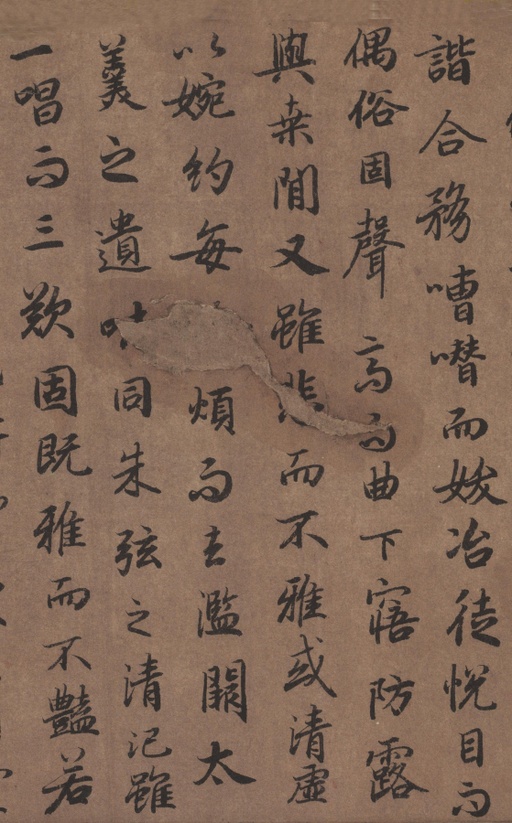 諧合務嘈囋而妖冶徒悅目而
偶俗固聲高而曲下寤防露
與桒間又雖悲而不雅或清虛
以婉約每煩而去濫闕太
羹之遺味同朱弦之清氾雖
一唱而三歎固既雅而不豔若